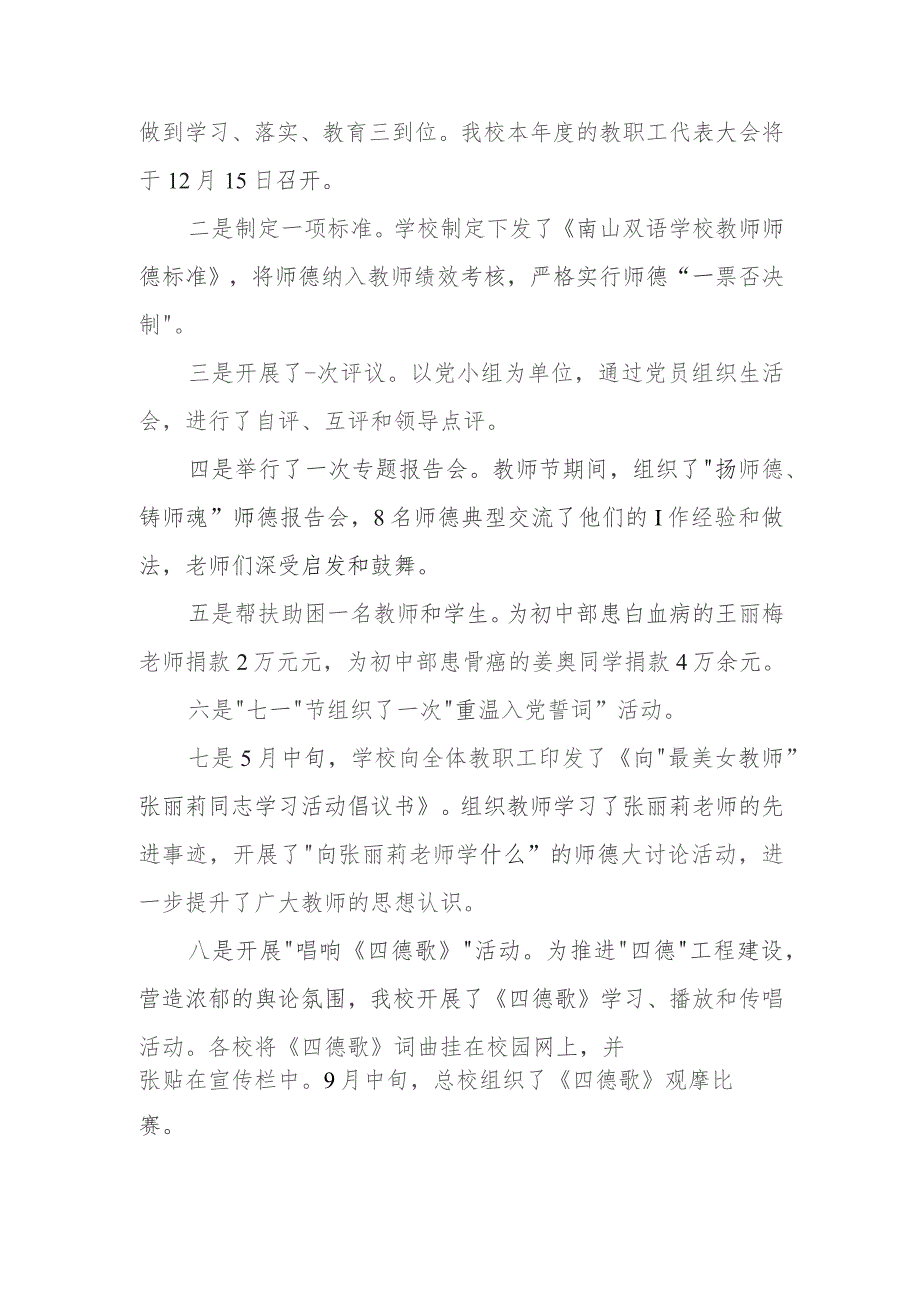 做到学习、落实、教育三到位。我校本年度的教职工代表大会将
于 12 月 15 日召开。
二是制定一项标准。学校制定下发了《南山双语学校教师师
德标准》，将师德纳入教师绩效考核，严格实行师德“一票否决
制"。
三是开展了-次评议。以党小组为单位，通过党员组织生活
会，进行了自评、互评和领导点评。
四是举行了一次专题报告会。教师节期间，组织了"扬师德、
铸师魂”师德报告会，8 名师德典型交流了他们的 I 作经验和做
法，老师们深受启发和鼓舞。
五是帮扶助困一名教师和学生。为初中部患白血病的王丽梅
老师捐款 2 万元元，为初中部患骨癌的姜奥同学捐款 4 万余元。
六是"七一"节组织了一次"重温入党誓词”活动。
七是 5 月中旬，学校向全体教职工印发了《向"最美女教师”
张丽莉同志学习活动倡议书》。组织教师学习了张丽莉老师的先
进事迹，开展了"向张丽莉老师学什么”的师德大讨论活动，进
一步提升了广大教师的思想认识。
八是开展"唱响《四德歌》"活动。为推进"四德"工程建设，
营造浓郁的舆论氛围，我校开展了《四德歌》学习、播放和传唱
活动。各校将《四德歌》词曲挂在校园网上，并
张贴在宣传栏中。9 月中旬，总校组织了《四德歌》观摩比
赛。